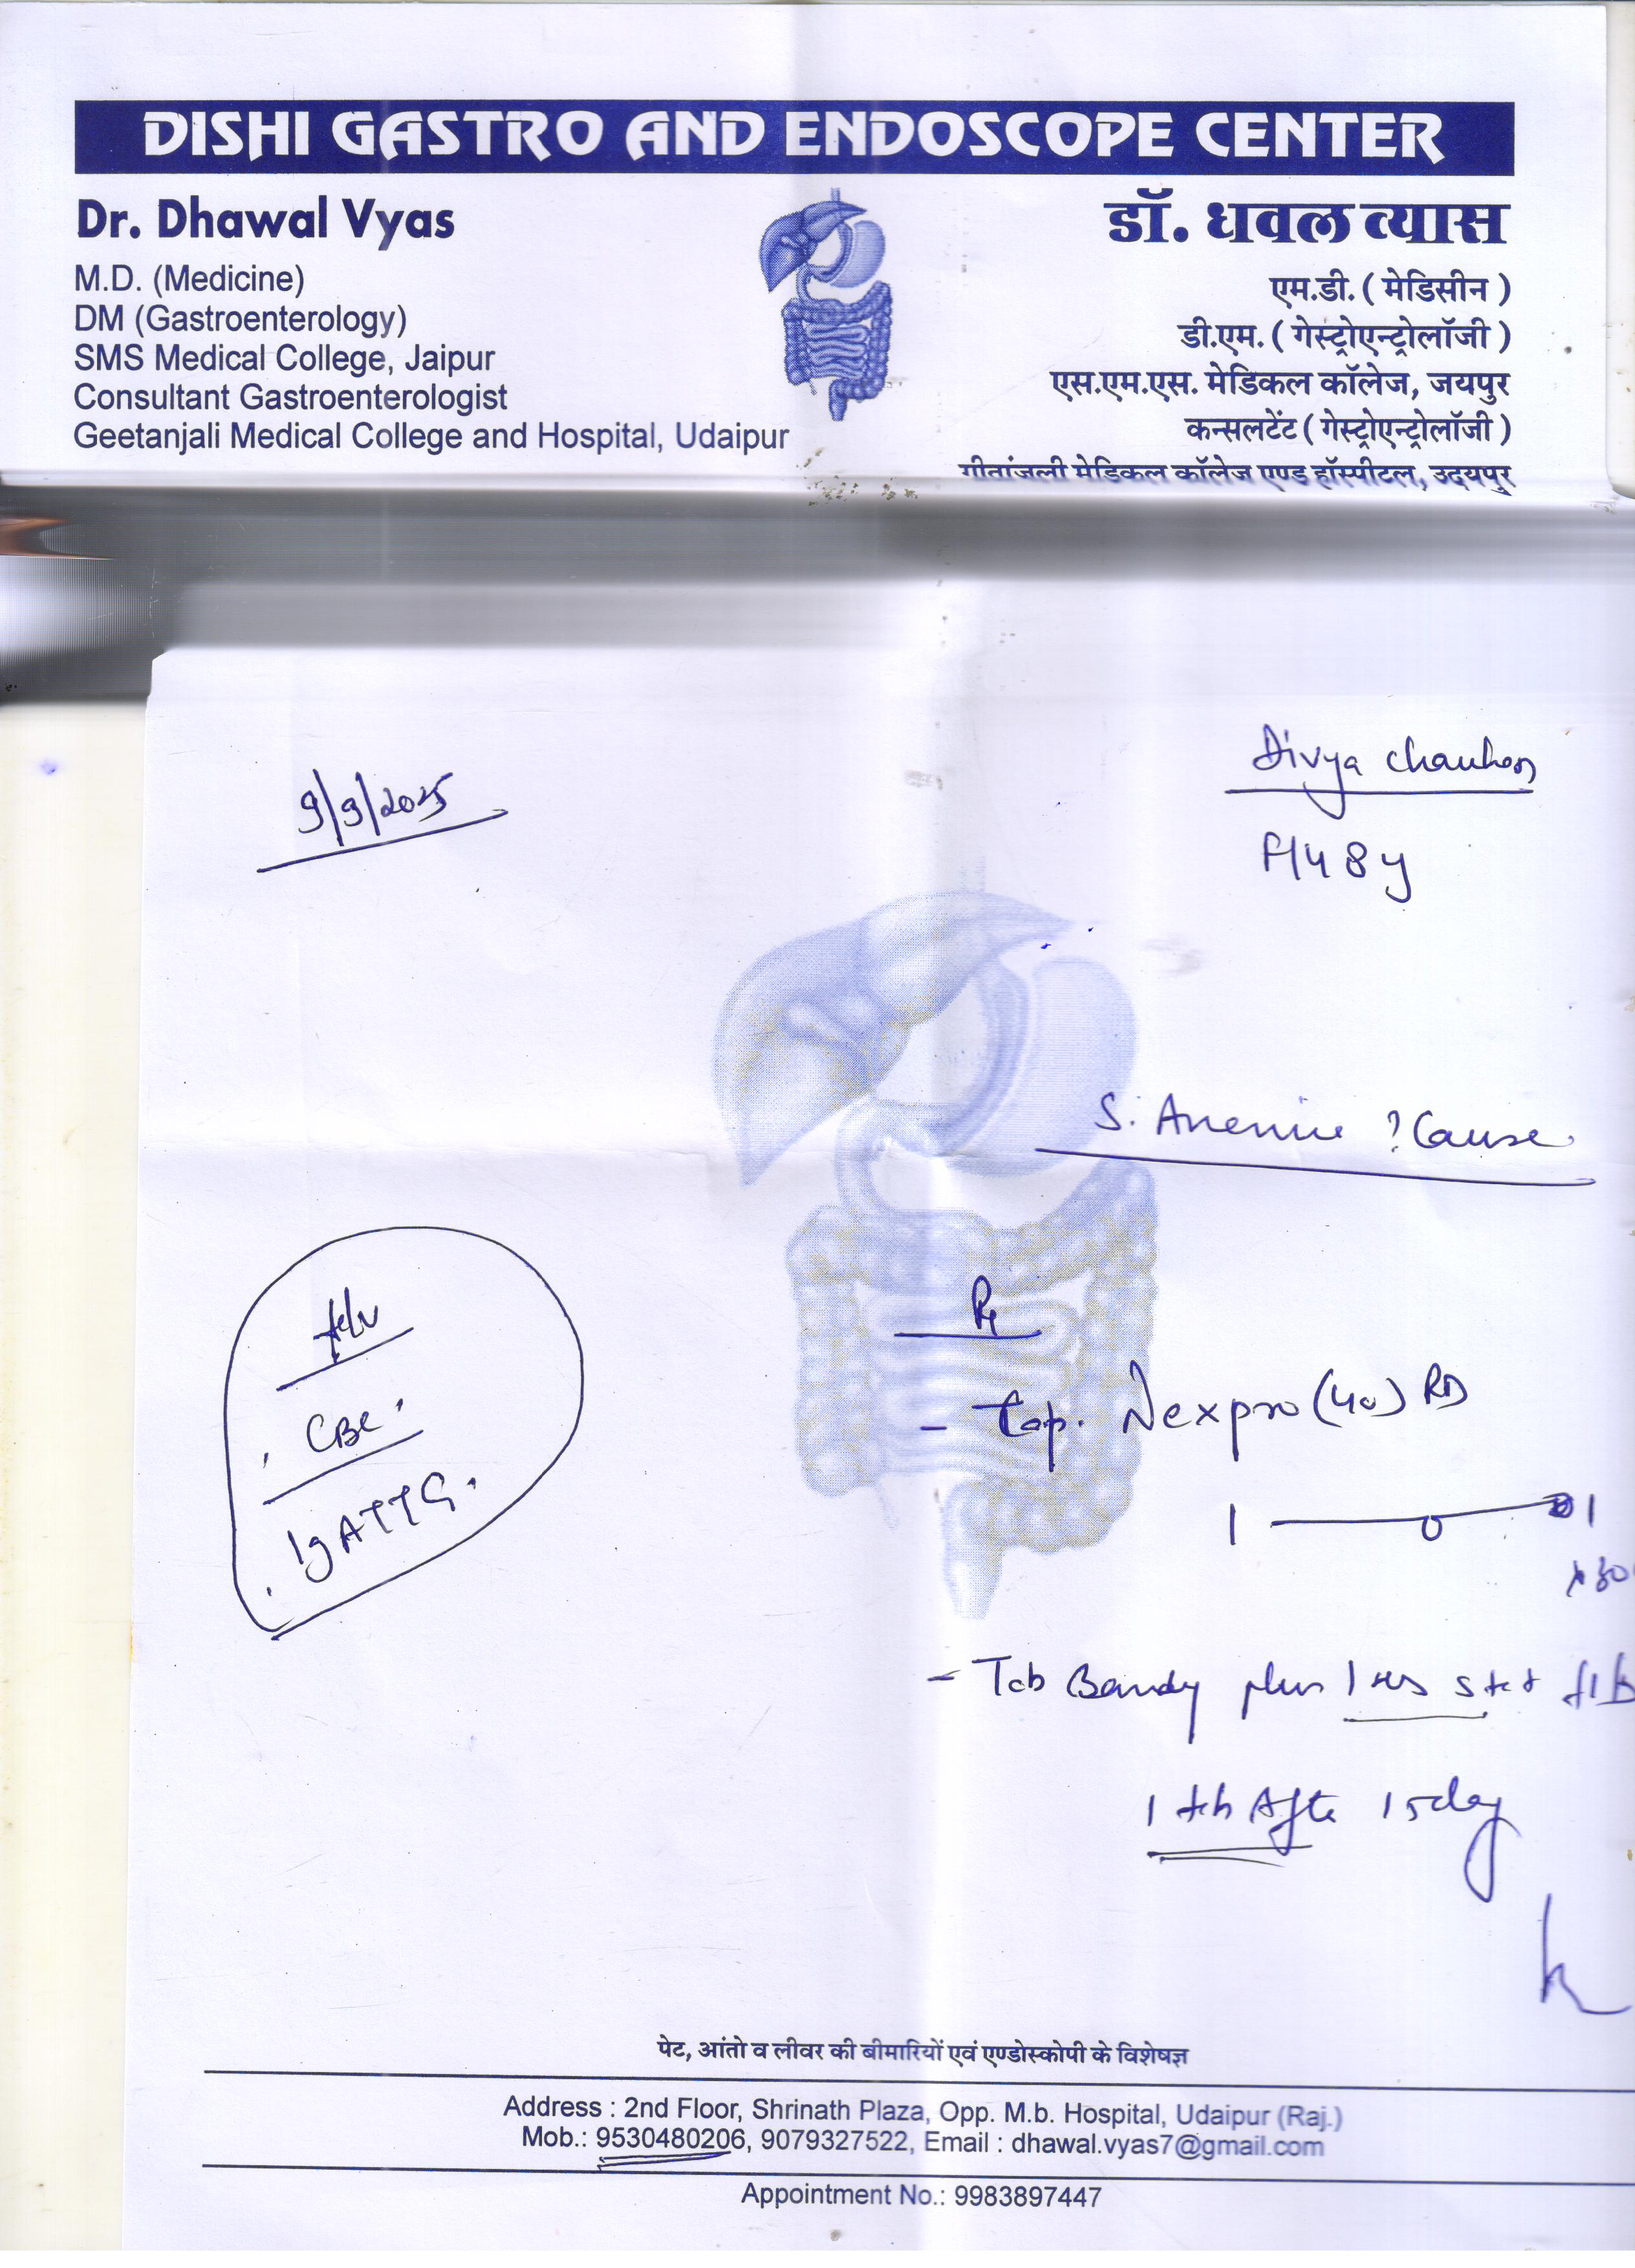 DISHI GASTRO AND ENDOSCOPE CENTER
Dr. Dhawal Vyas
M.D. (Medicine)
DM (Gastroenterology)
SMS Medical College, Jaipur
Consultant Gastroenterologist
Geetanjali Medical College and Hospital, Udaipur
डॉ. धवल व्यास
एम.डी. ( मेडिसीन )
डी.एम. ( गेस्ट्रोएन्ट्रोलॉजी )
एस.एम.एस. मेडिकल कॉलेज, जयपुर
कन्सलटेंट ( गेस्ट्रोएन्ट्रोलॉजी )
गीतांजली मेडिकल कॉलेज एण्ड हॉस्पीटल, उदयपुर
9/9/2025
Divya Chauhan
F/48y
S. Anemia ? Cause
CBC
IgA TTG
- Cap. Nexpro (40) RD
1 — 0 — 1
- Tab Bandy plus 1 HS stat
1 tab After 15 day
पेट, आंतो व लीवर की बीमारियों एवं एण्डोस्कोपी के विशेषज्ञ
Address : 2nd Floor, Shrinath Plaza, Opp. M.b. Hospital, Udaipur (Raj.)
Mob.: 9530480206, 9079327522, Email : dhawal.vyas7@gmail.com
Appointment No.: 9983897447